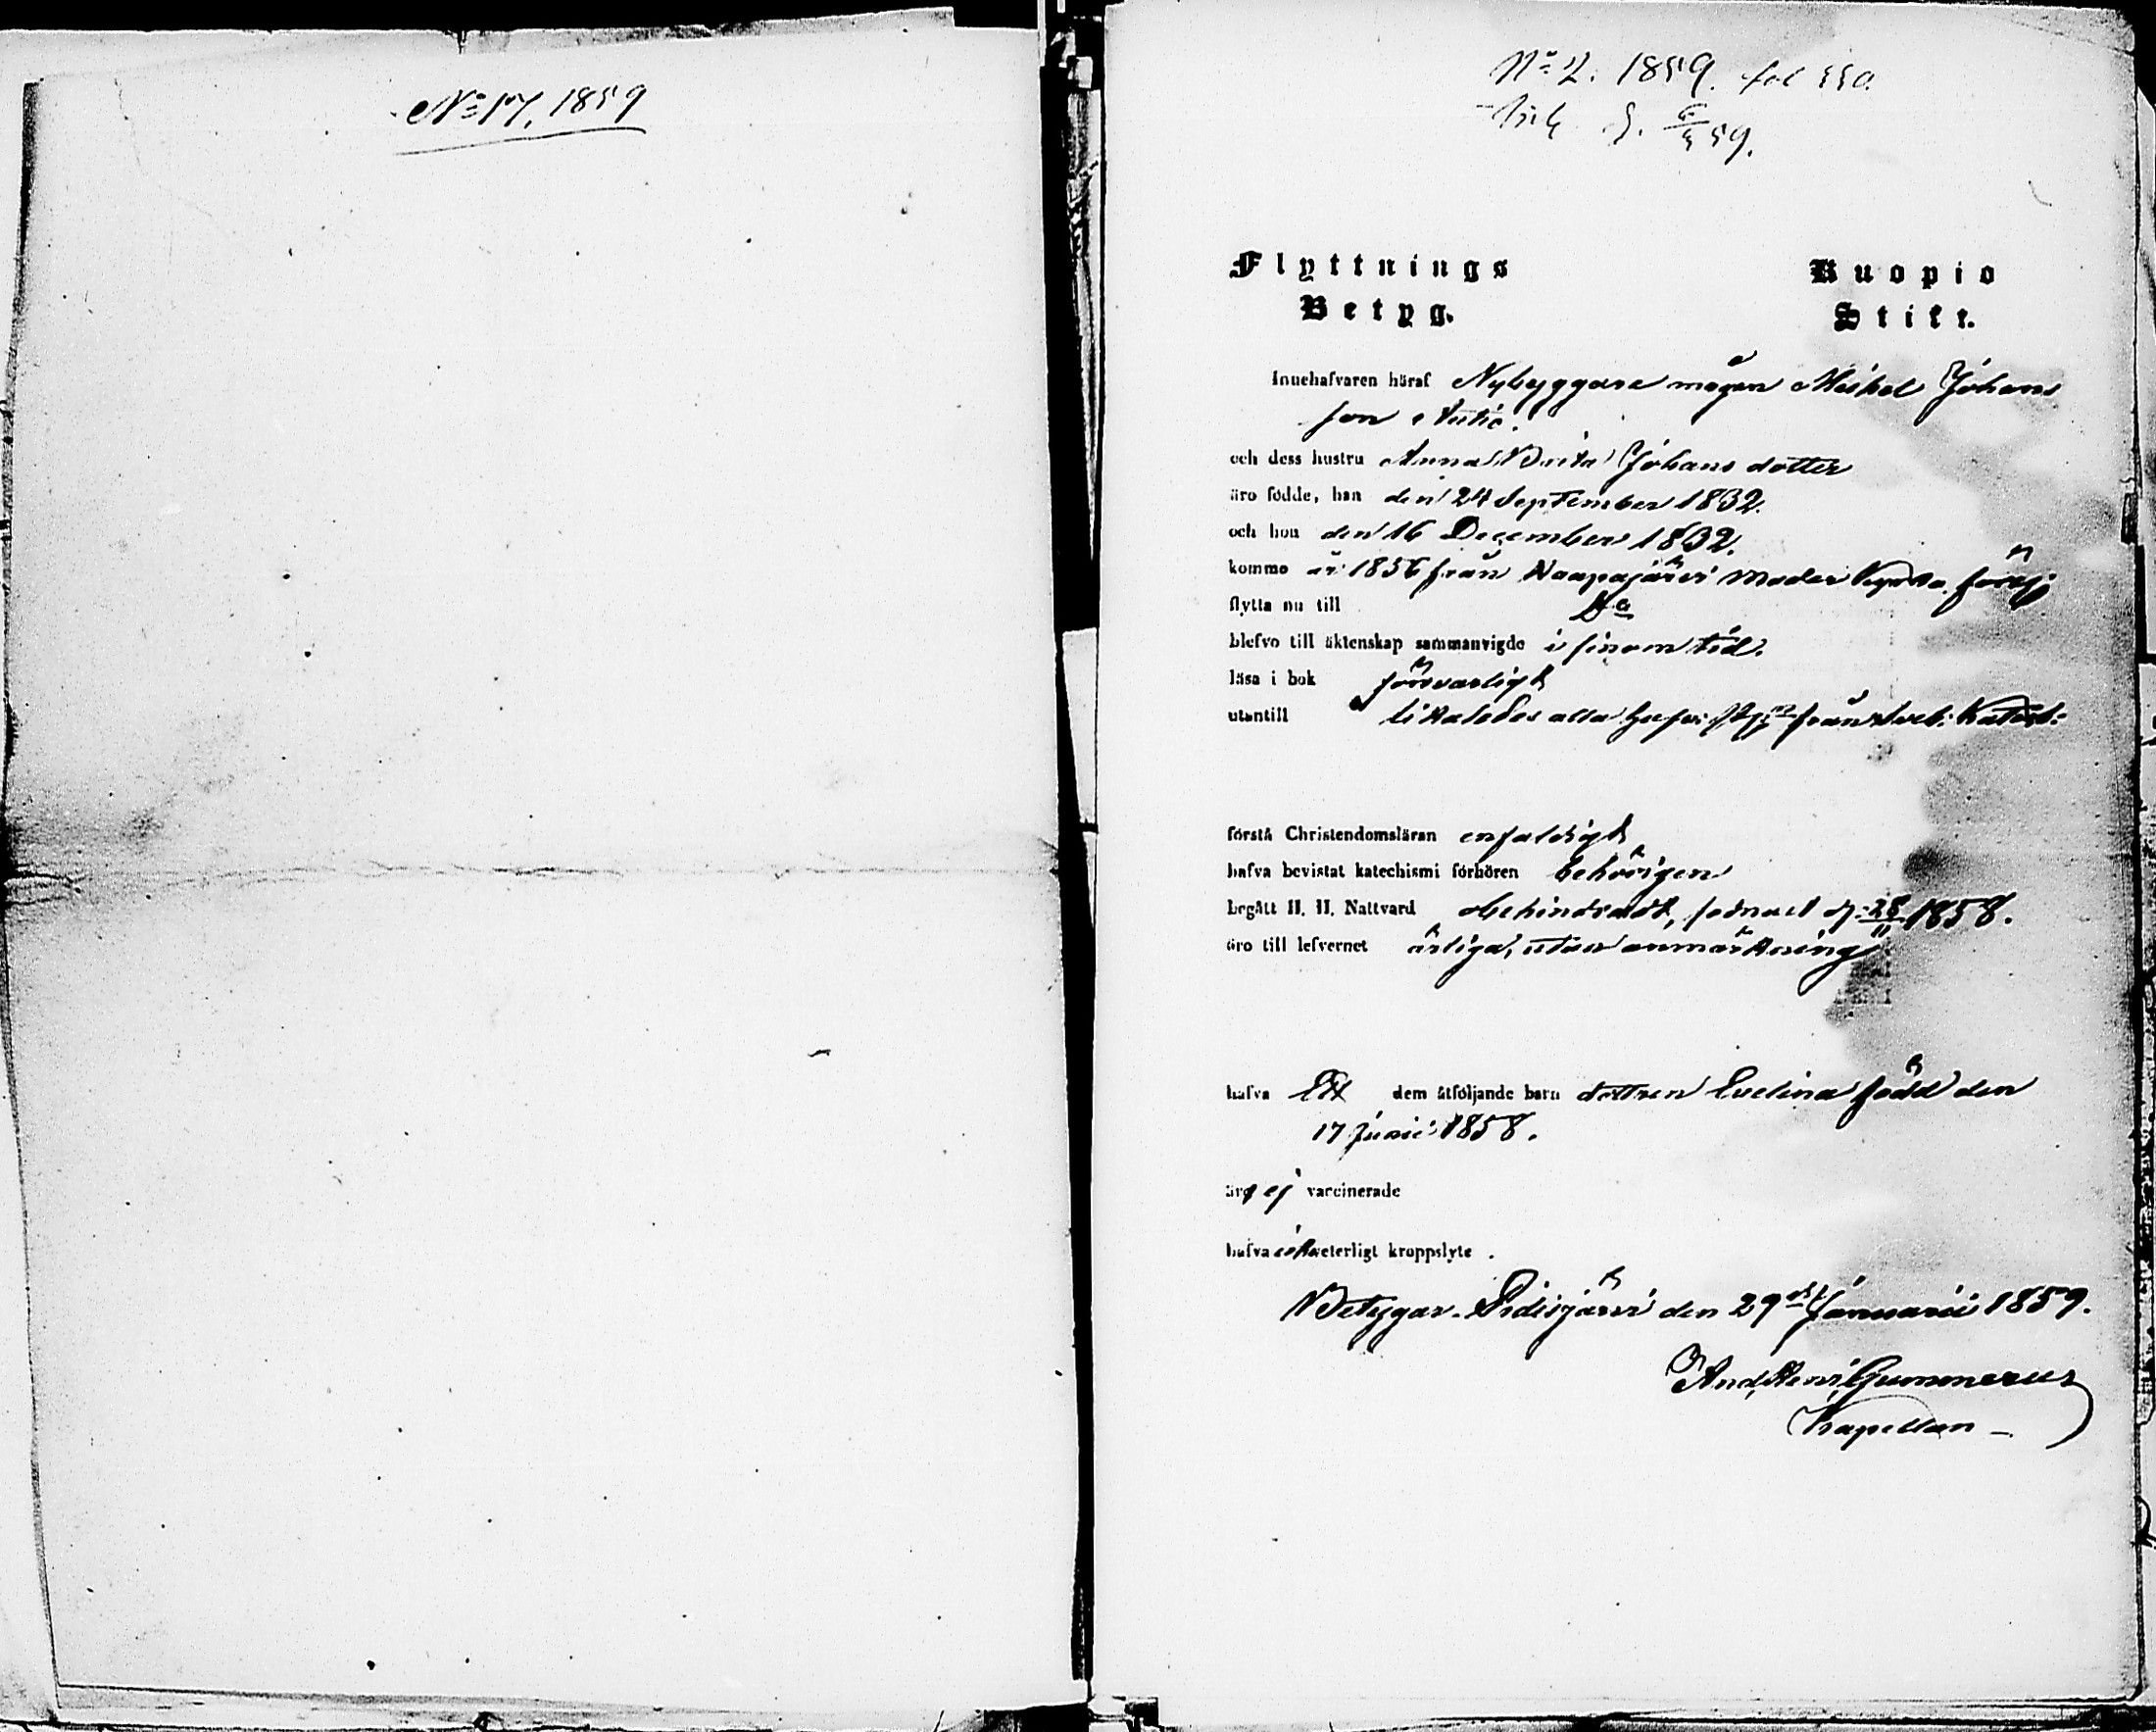 No 17, 1859
No 2. 1859. fol 550.
59.
Flyttnings
Betyg.
Kuopio
Stift.
Innehafvaren häraf Nybyggare mågen Mickel Johans
son Autio.
och dess hustru Anna Brita Johans dotter
äro födde, han den 24 September 1832.
och hon den 16 December 1832.
kommo år 1856 från Haapajärvi Moder
flytta nu till Do
blefvo till äktenskap sammanvigde i sinom tid.
läsa i bok försvarligt
utantill likaledes alla från
förstå Christendomsläran enfaldigt
hafva bevistat katechismi förhören behörigen
begått H. H. Nattvard obehindradt, sednast d. 28/11 1858.
äro till lefvernet ärliga, utan anmärkning
hafva Ett dem åtföljande barn dottren Evelina född den
17 Junii 1858.
äro ej vaccinerade
hafva icke veterligt kroppslyte .
Betygar. Pidisjärvi den 29de Januarii 1859.
And. Henr. Gummerus
Kapellan